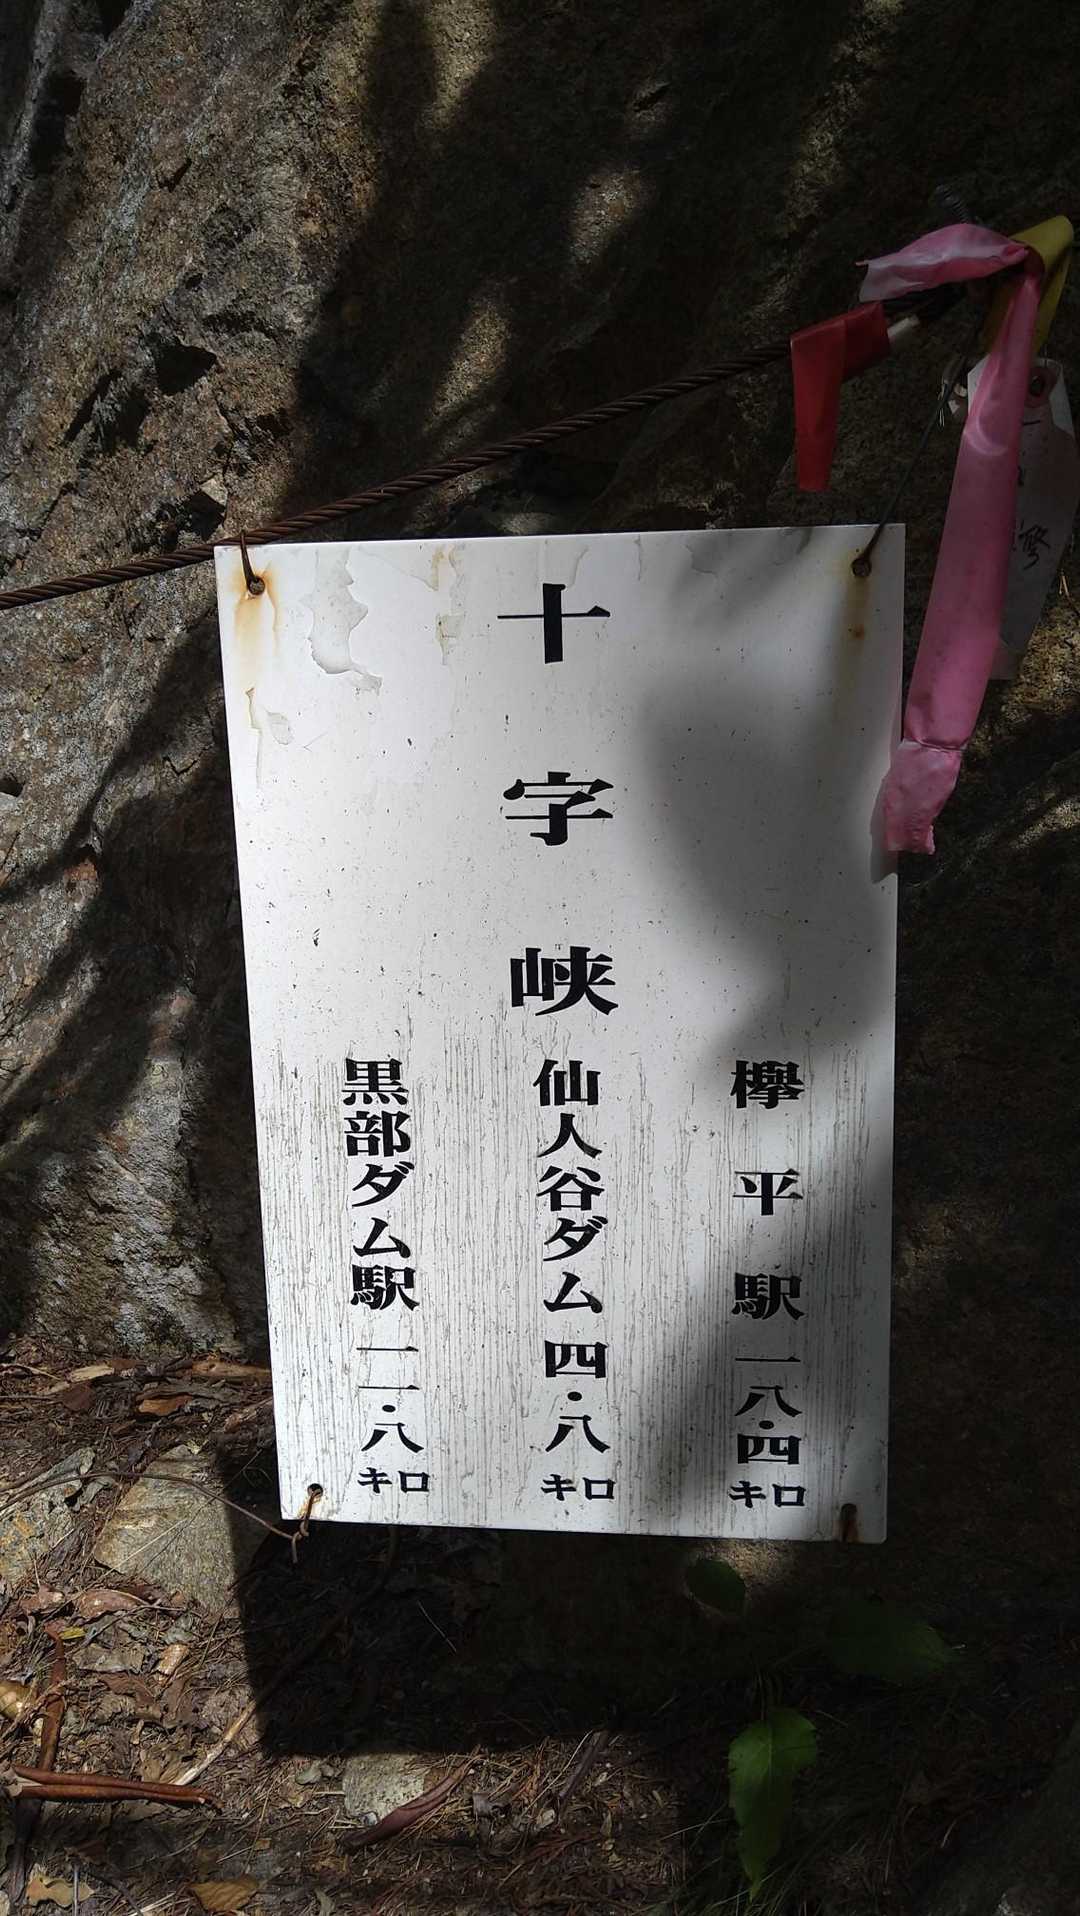 十字峡
欅平駅一八・四キロ
仙人谷ダム四・八キロ
黒部ダム駅一一・八キロ